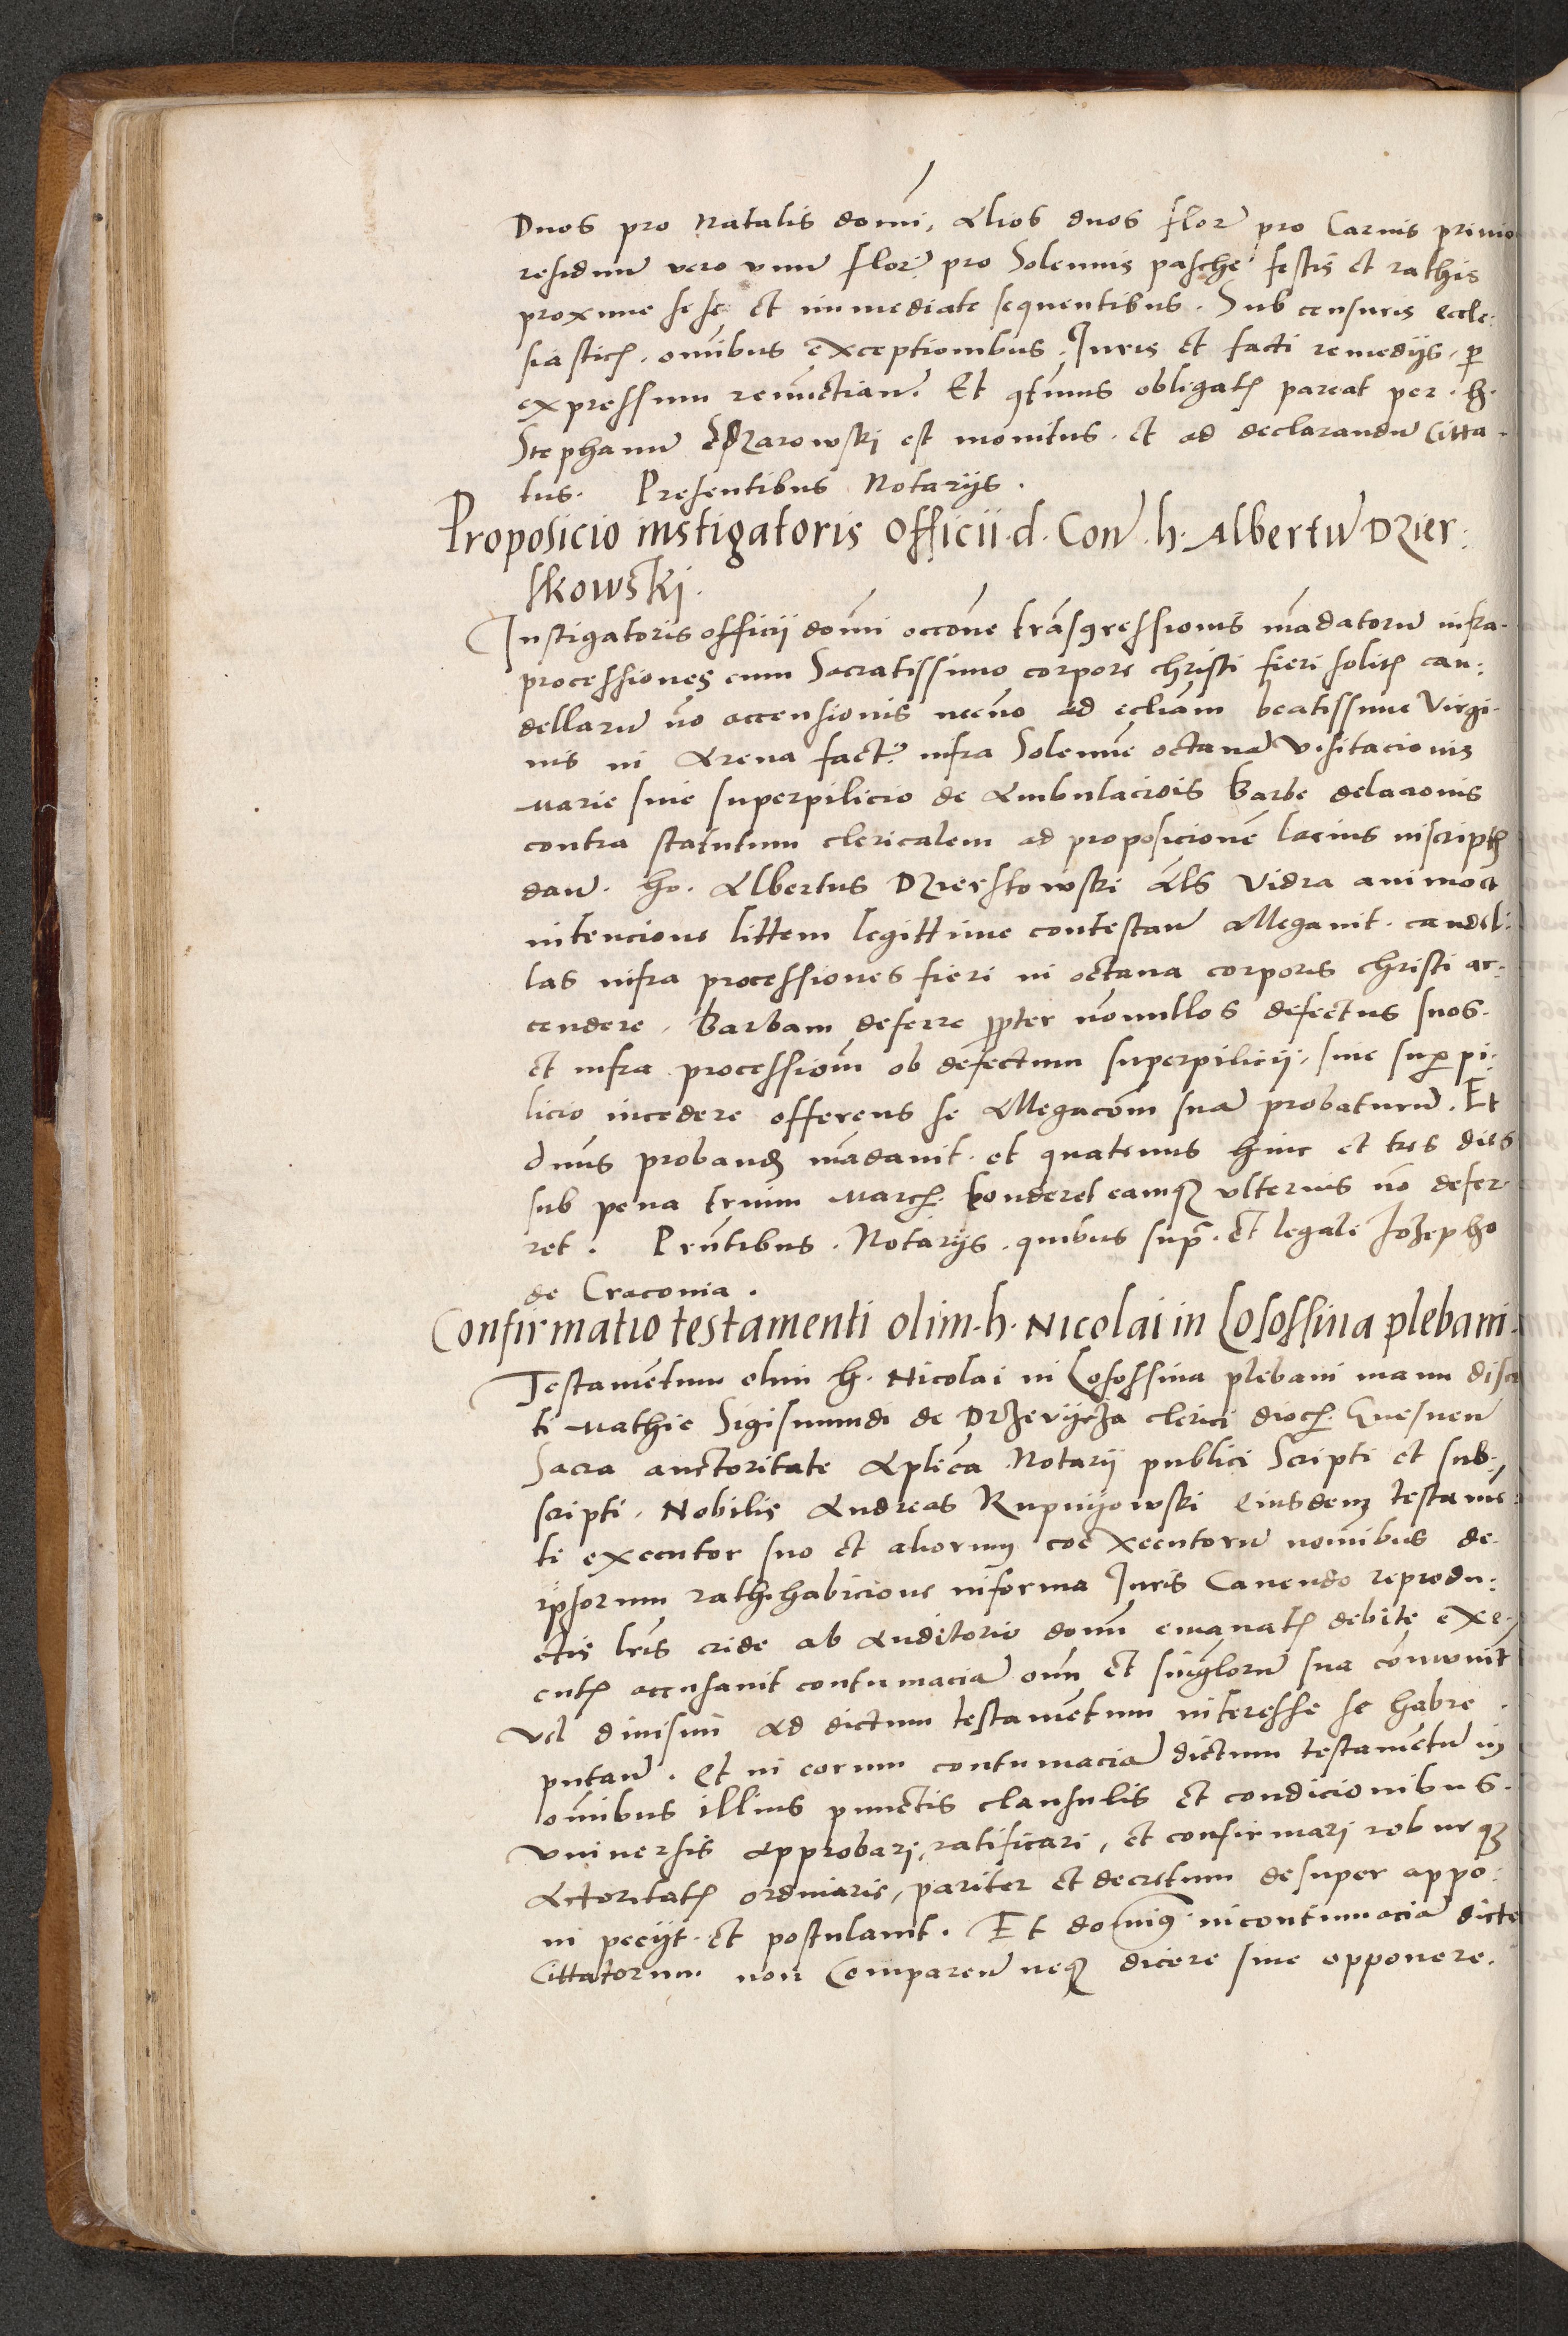 Duos pro Natalis domi, Alios duos flor pro Carnis privio
residuum vero unum flor pro Solennis pasche festis et rathis
proxime se se et immediate sequentibus. Sub censuris eccle:
siastic. omnibus exceptionibus. Iuris et facti remedijs. per
expressum renunctian. Et qtenus obligat pareat per. h.
Stephanum Ozarowski est monitus. et ad declarandum Citta-
tus. Presentibus Notarijs.
Proposicio instigatoris Officii. d. Con. h. Albertum Dzier:
skowskj.
Instigatoris officij domi occone transgressionis mandatorum infra-
processiones cum Sacratissimo corpore christi fieri solit can:
dellarum no accensionis necno ad eccliam beatissime Virgi-
nis in Arena fact. infra Solenne octavam Visitacionis
Marie sine superpilicio de Ambulacrois Barbe delacionis
contra statutum clericalem ad proposicione lacius inscript
dan. ho. Albertus Dzierskowski Als Vidra animo et
intencione littem legittime contestan Allegavit. candel:
las infra processiones fieri in octava corporis christi ac-
cendere. Barbam deferre propter nonnullos defectus suos.
et infra processiom ob defectum superpilicij, sine super pi:
licio incedere offerens se Allegacom suam probaturum. Et
dnus proband mandavit. et quatenus hinc et tres dies
sub pena trium March. tonderet eamque ulterius no defer-
ret. Prntibus. Notarijs. quibus supra. et legale Jozepho
de Craconia.
Confirmatio testamenti olim. h. Nicolai in Lososina plebani.
Testamentum olim h. Nicolai in Lososina plebani manu discre
ti Mathie Sigismundi de Drzevycza clerici dioc. Gnesnen
Sacra auctoritate Aplica Notarij publici Scripti et sub-
scripti. Nobilis Andreas Rupnyowski Eiusdem testame:
ti executor suo et aliorum coexecutorum nominibus de
ipsorum rathihabicione in forma Juris Cavendo reprodu:
ctis lris cride ab Auditorio domi emanat debite exe-
cut accusavit contumaciam omn et singlorum sua comunit
vel divisim Ad dictum testamentum interesse se habre.
putan. Et in eorum contumaciam dictum testamentum in
omibus illius punctis clausulis et condicionibus.
Universis Approbari, ratificari, et confirmari roburque
Actoritat ordinarie, pariter et decretum desuper appo:
ni pecijt. et postulavit. Et dominus in contumaciam dicto
Cittatorum non Comparen neque dicere sive opponere.